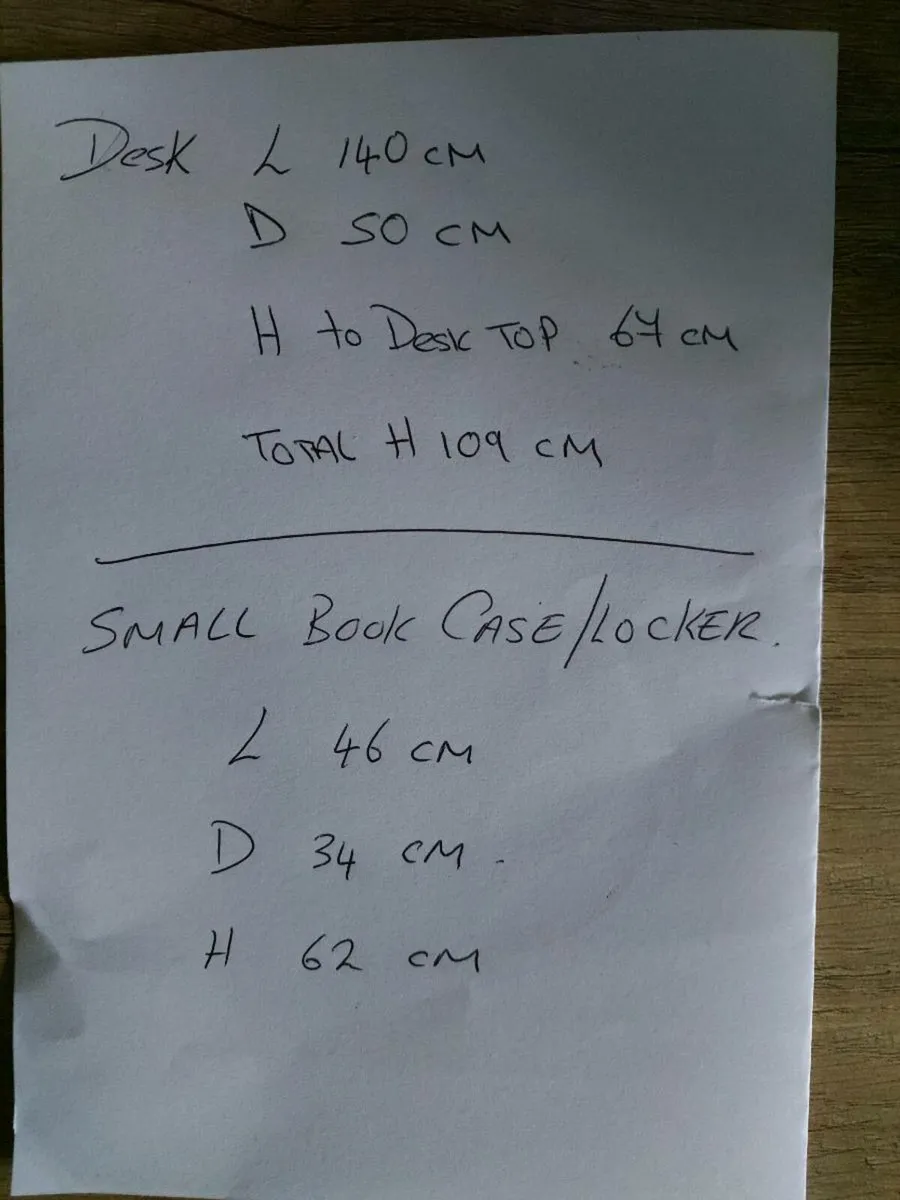 Desk L 140 CM
D 50 CM
H to Desk TOP 67 CM
TOTAL H 109 CM
SMALL BOOK CASE/LOCKER.
L 46 CM
D 34 CM.
H 62 CM